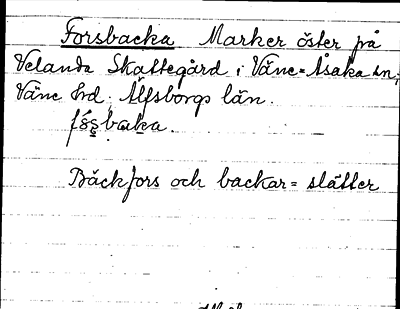 Forsbacka Marker öster på
Velanda Skattegård i Väne-Åsaka sn,
Väne hrd, Älfsborgs län.
Bäckfors och backar = slätter